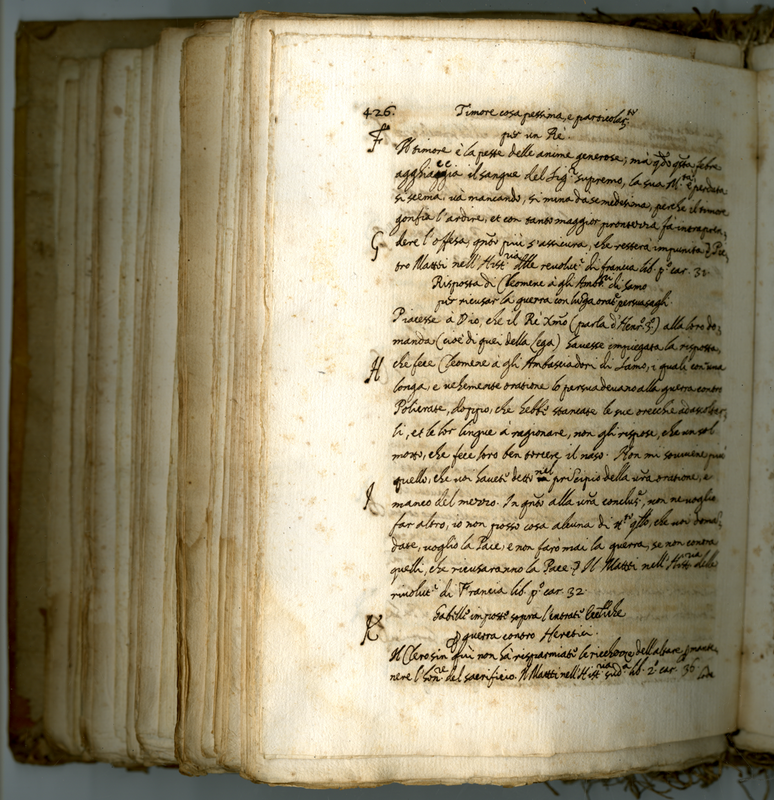 426.
Timore cosa pessima, e particolar.te
F
per un Rè
Il timore è la peste delle anime generose; mà qdo qsta febre
agghiaccia il sangue del Sig.r supremo, la sua M.tà è perduta
si scema, và mancando, si mena da se medesima, perche il timore
gonfia l'ardire, et con tanto maggior prontezza fà intrapren;
G
dere l'offesa, qnto più s'assicura, che resterà impunita. Pie;
tro Matthi nell'Hist.ria delle revolut.i di francia lib. p.o car. 31.
Risposta di Cleomene à gli Amb.ri di Samo
per ricusar la guerra con lunga orat.e persuasagli.
Piacesse à Dio, che il Rè Xmo (parla d'Henr.o 3.o) alla loro do;
manda (cioè di quei della lega) havesse impiegata la risposta,
H
che fece Cleomene à gli Ambasciadori di Samo, i quali con una
longa, e vehemente oratione lo persuadevano alla guerra contro
Policrate, doppio, che hebbe stancate le sue orecchie ad ascoltar;
li, et le lor lingue à ragionare, non gli rispose, che un sol
motto, che fece loro ben torcere il naso. Non mi soviene più
quello, che voi havete detto nel principio della vra oratione, e
I
manco del mezzo. In qnto alla vra conclus.e, non ne voglio
far altro, io non posso cosa alcuna di qllo, che voi doma;
date, voglio la Pace, e non farò mai la guerra, se non contra
quelli, che ricusaranno la Pace. Il Matthi nell'Hist.ria delle
rivolut.i di Francia lib. p.o car. 32.
Gabelle imposte sopra l'entrate Ecclesiche
K
p guerra contro Heretici.
Il Clero sin qui non hà risparmiato le ricchezze dell'altare p mante;
nere l'hon.e del sacrificio. Il Matthi nell'Hist.ria sud.a lib. 2.o car. 36.